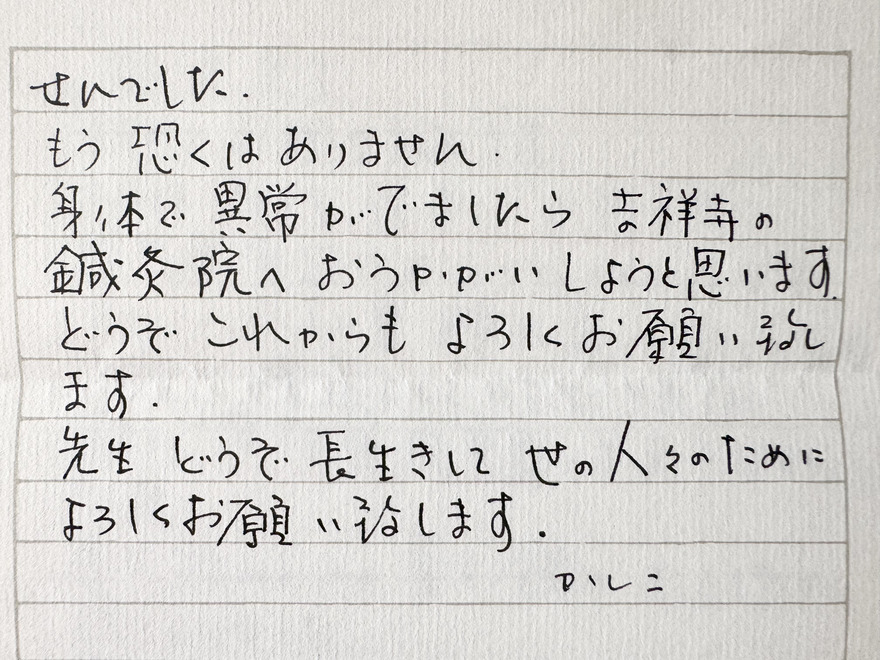 せんでした.
もう恐くはありません.
身体で異常がでましたら 吉祥寺の
鍼灸院へ おうかがいしようと思います.
どうぞ これからも よろしくお願い致し
ます.
先生 どうぞ 長生きして 世の人々のために
よろしくお願い致します.
かしこ